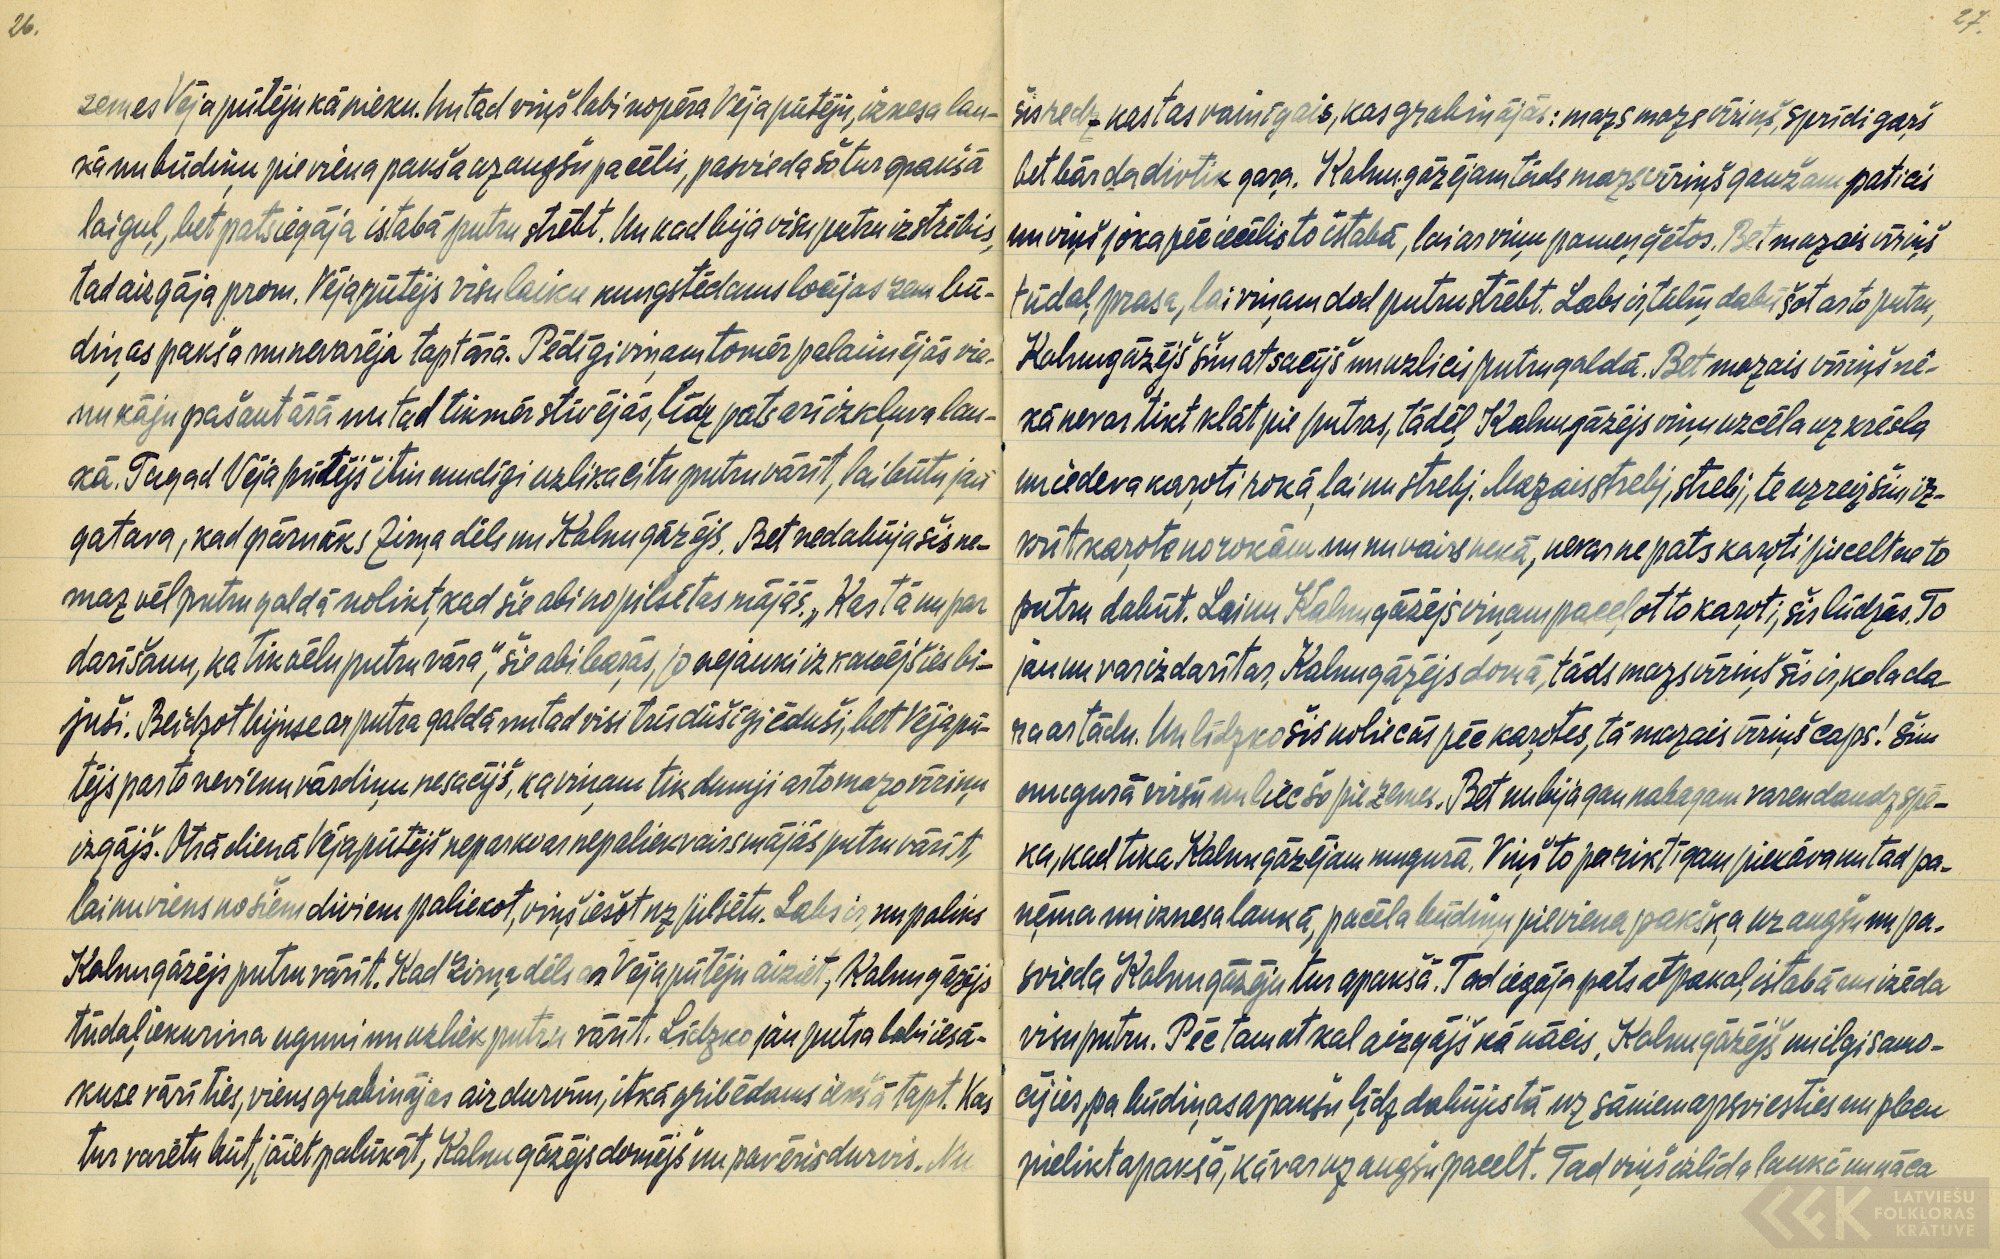 26.
zemes Vēja pūtēju kā nieku. Un tad viņš labi nopēra Vēja pūtēju, iznesa lau-
kā un būdiņu pie viena pakša uz augšu pacēlis, pasvieda šo tur apakšā
lai guļ, bet pats iegāja istabā putru strēbt. Un kad bija visu putru izstrēbis,
tad aizgāja prom. Vēja pūtējs visu laiku kungstēdams locījas zem bū-
diņas pakša un nevarēja tapt ārā. Pēdīgi viņam tomēr palaimējās vie-
nu kāju pašaut ārā un tad tikmēr stīvējās, līdz pats arī izkļuva lau-
kā. Tagad Vēja pūtējš itin mudīgi uzlika citu putru vārīt, lai būtu jau
gatava, kad pārnāks Zirņa dēls un Kalnu gāzējs. Bet nedabūja šis ne-
maz vēl putru galdā nolikt, kad šie abi no pilsētas mājās. „Kas tā nu par
darīšanu, ka tik vēlu putru vāra," šie abi barās, jo nejauki izkavējšies bi-
juši. Beidzot bijuse ar putra galdā un tad visi trīs dūšīgi ēduši, bet Vēja pū-
tējs par to nevienu vārdiņu nesacījš, ka viņam tik dumji ar to mazo vīriņu
izgājš. Otrā dienā Vēja pūtējš neparko ar nepaliek vairs mājās putru vārīt,
lai nu viens no šiem diviem paliekot, viņš iešot uz pilsētu. Labs ir, nu paliks
Kalnu gāzējs putru vārīt. Kad Zirņa dēls ar Vēja pūtēju aiziet, Kalnu gāzējs
tūdaļ iekurina uguni un uzliek putru vārīt. Līdzko jau putra labi iesā-
kuse vārīties, viens grabinājas aiz durvīm, it kā gribēdams iekšā tapt. Kas
tur varētu būt, jāiet palūkāt, Kalnu gāzējs domējš un pavēris durvis. Nu
27.
šis redz kas tas vainīgais, kas grabinājās: mazs mazs vīriņš, sprīdi gaŗš
bet bārda divtik gaŗa. Kalnu gāzējam tāds mazs vīriņš gaužam paticis
un viņš joka pēc iecēlis to istabā, lai ar viņu pameņģētos. Bet mazais vīriņš
tūdaļ prasa, lai viņam dod putru strēbt. Labs ir, tūliņ dabūšot ar to putru,
Kalnu gāzējš šim atsacījš un uzlicis putru galdā. Bet mazais vīriņš ne-
kā nevar tikt klāt pie putras, tādēļ Kalnu gāzējs viņu uzcēla uz krēsla
un iedeva kaŗoti rokā, lai nu strebj. Mazais strebj, strebj, te uzreiz šim iz-
krīt kaŗote no rokām un nu vairs nekā, nevar ne pats kaŗoti piecelt ne to
putru dabūt. Lai nu Kalnu gāzējs viņam paceļot to kaŗoti, šis lūdzās. To
jau nu var izdarīt ar, Kalnu gāzējs domā, tāds mazs vīriņš šis ir, ko lai da-
ra ar tādu. Un līdzko šis noliecās pēc kaŗotes, tā mazais vīriņš caps! šim
mugurā virsū un liec šo pie zemes. Bet nu bija gan nabagam varen daudz spē-
ka, kad tika Kalnu gāzējam mugurā. Viņš to pariktīgam piekāva un tad pa-
ņēma un iznesa laukā, pacēla būdiņu pie viena pakšķa uz augšu un pa-
svieda Kalnu gāzēju tur apakšā. Tad iegāja pats atpakaļ istabā un izēda
visu putru. Pēc tam atkal aizgājš kā nācis, Kalnu gāzējš un ilgi samo-
cījies, pa būdiņas apakšu līdz dabūjis tā uz sāniem apsviesties un plecu
pielikt apakšā, kā var uz augšu pacelt. Tad viņš izlīda laukā un nāca
LATVIEŠU
FOLKLORAS
KRĀTUVE